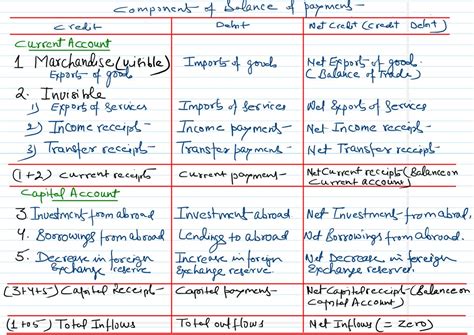 Components of Balance of payments
Credit Debit Net Credit (Credit Debit)
Current Account
1 Marchandise (visible) Imports of goods Net Exports of goods
Exports of goods (Balance of Trade)
2. Invisible
1) Exports of Services Imports of Services Net Exports of Services
2) Income receipts Income payments Net Income receipts
3) Transfer receipts Transfer payments Net Transfer receipts
(1+2) Current receipts Current payments Net Current receipts (Balance on
Current account)
Capital Account
3 Investment from abroad Investment abroad Net Investment from abroad.
4. Borrowings from abroad Lending to abroad Net Borrowings from abroad.
5. Decrease in foreign Increase in foreign Net Decrease in foreign
Exchange reserve Exchange reserve Exchange reserve.
(3+4+5) Capital Receipts Capital payments Net Capital receipts (Balance on
Capital Account)
(1 to 5) Total Inflows Total outflows Net Inflows (= Zero)